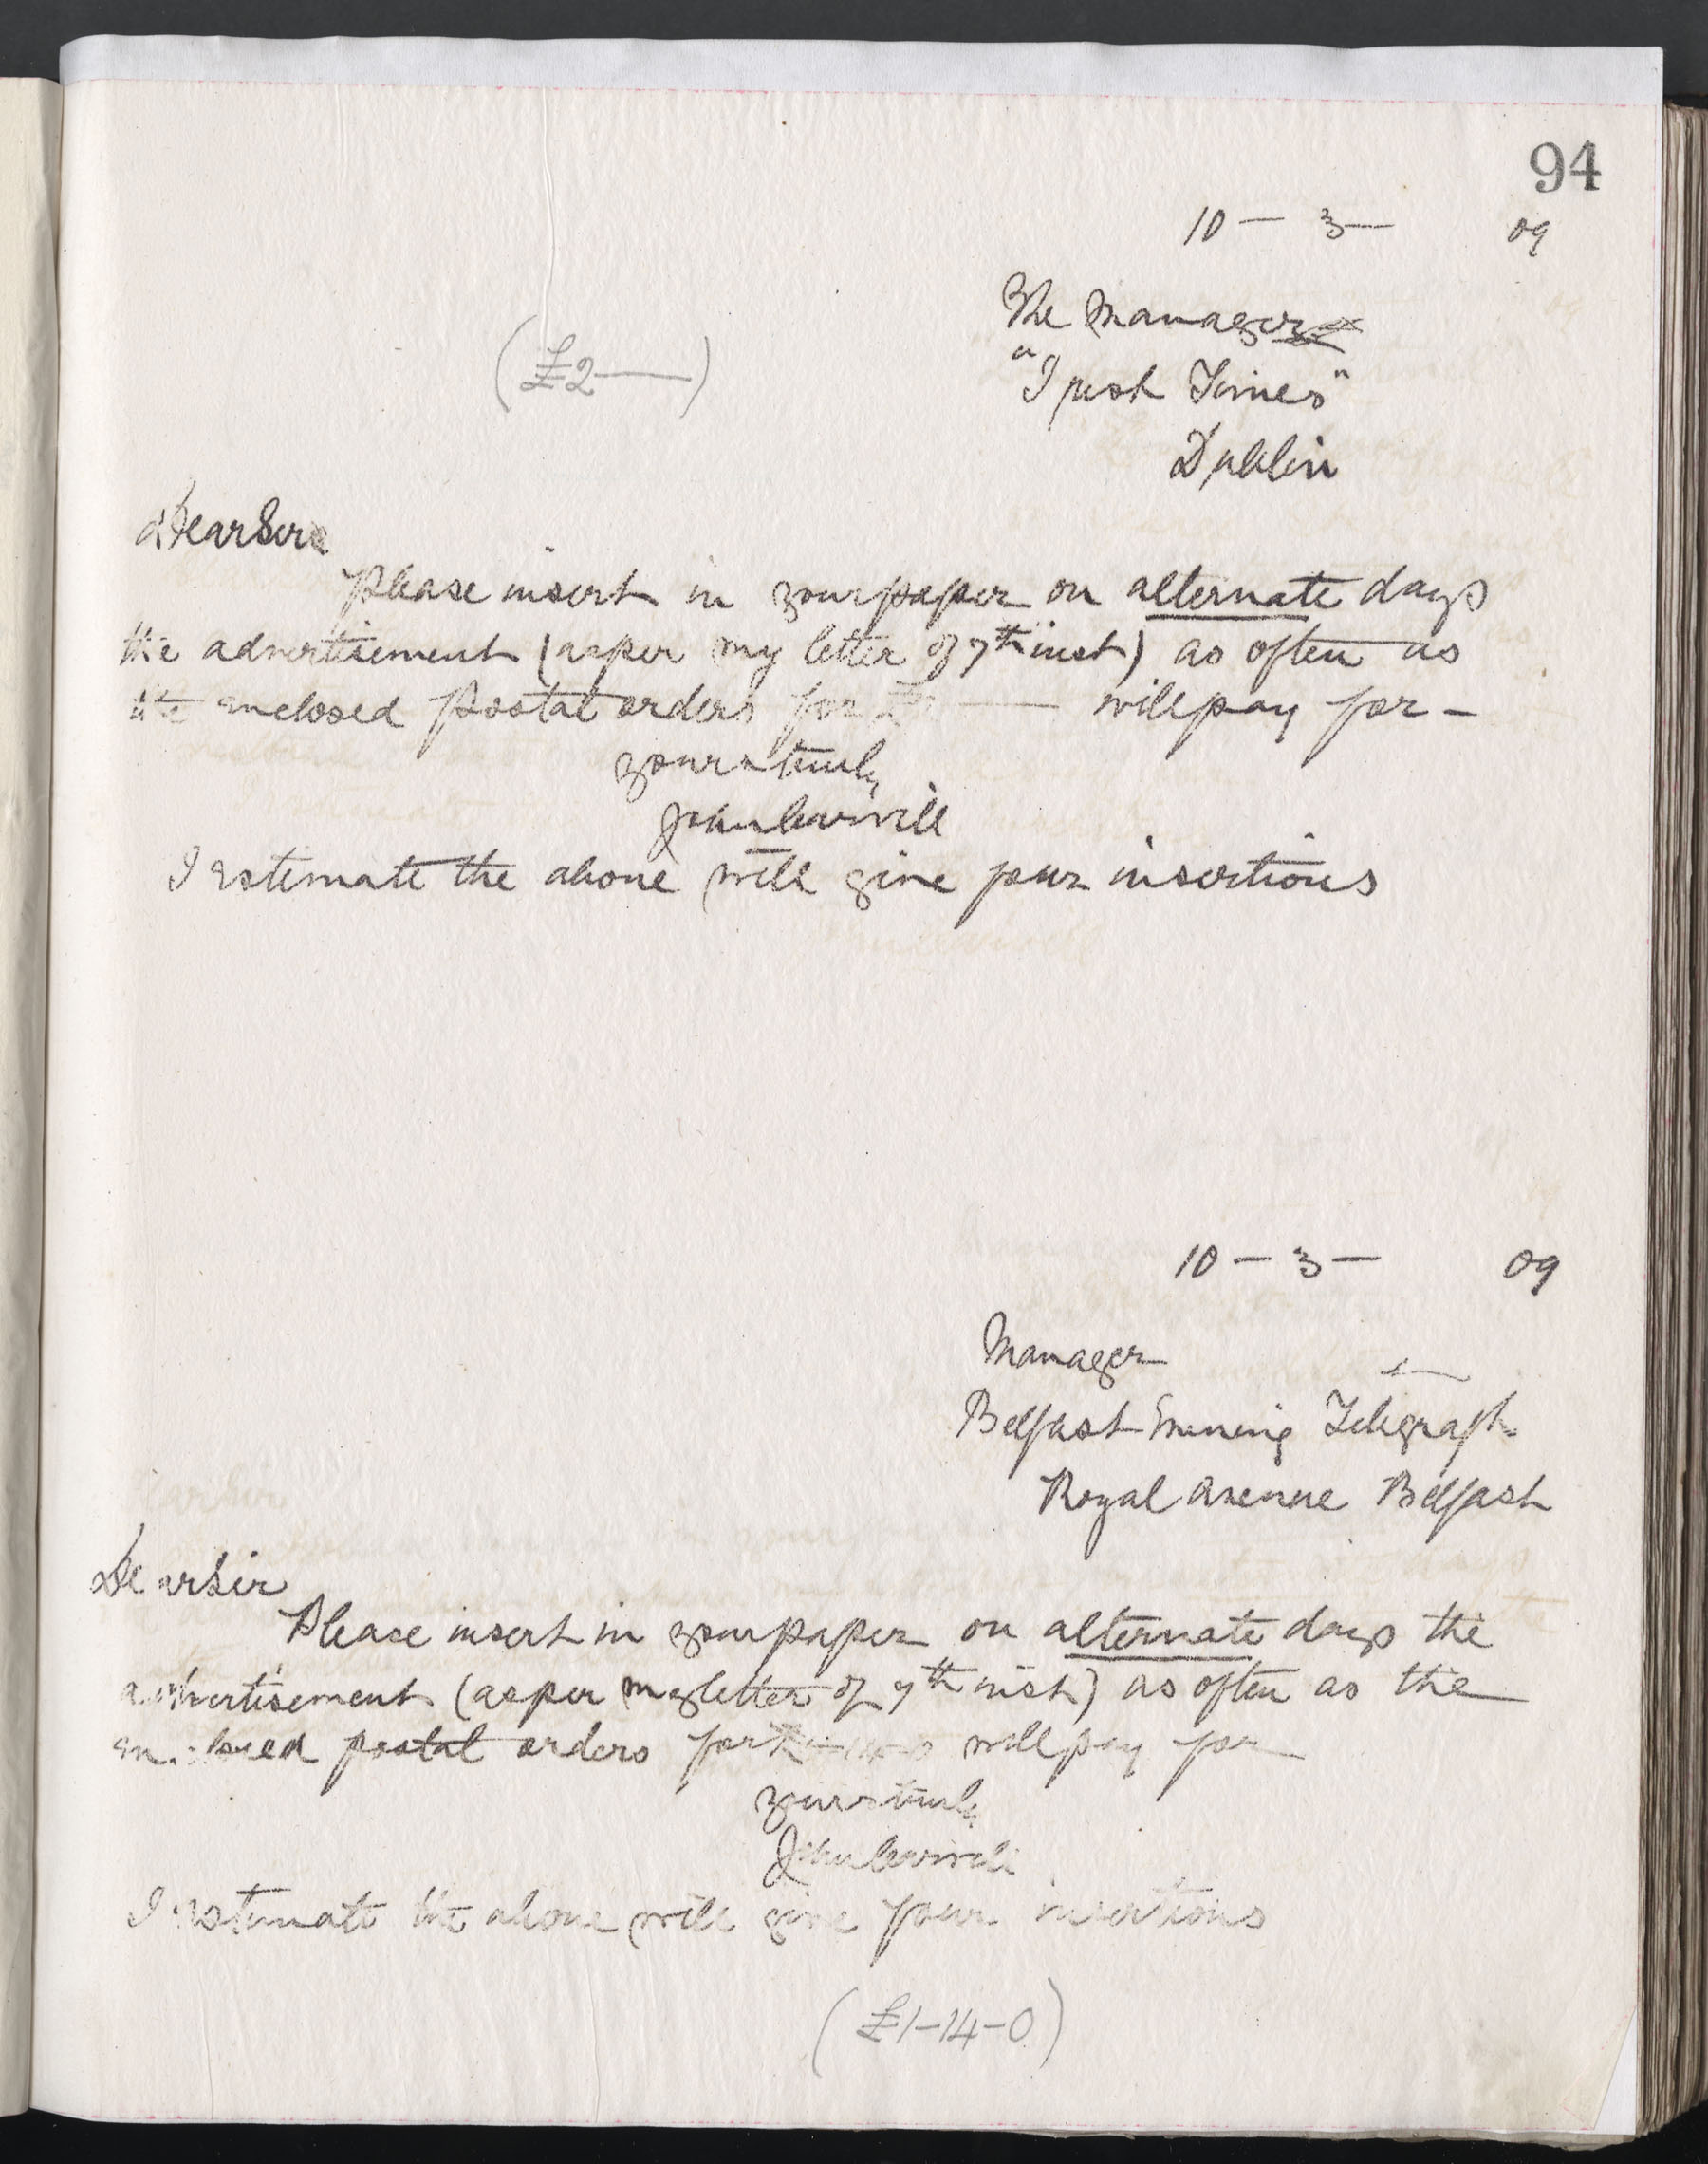 94
10 — 3 — 09
The Manager
(£2 —)
"Irish Times"
Dublin
Dear Sir
Please insert in your paper on alternate days
the advertisement (as per my letter of 7th inst) as often as
the enclosed postal orders for £2 — will pay for -
yours truly
I estimate the above will give four insertions
10 — 3 — 09
Manager
Belfast Evening Telegraph
Royal Avenue Belfast
Dear Sir
Please insert in your paper on alternate days the
advertisement (as per my letter of 7th inst) as often as the
enclosed postal orders for £1-14-0 will pay for
yours truly
I estimate the above will give four insertions
(£1-14-0)